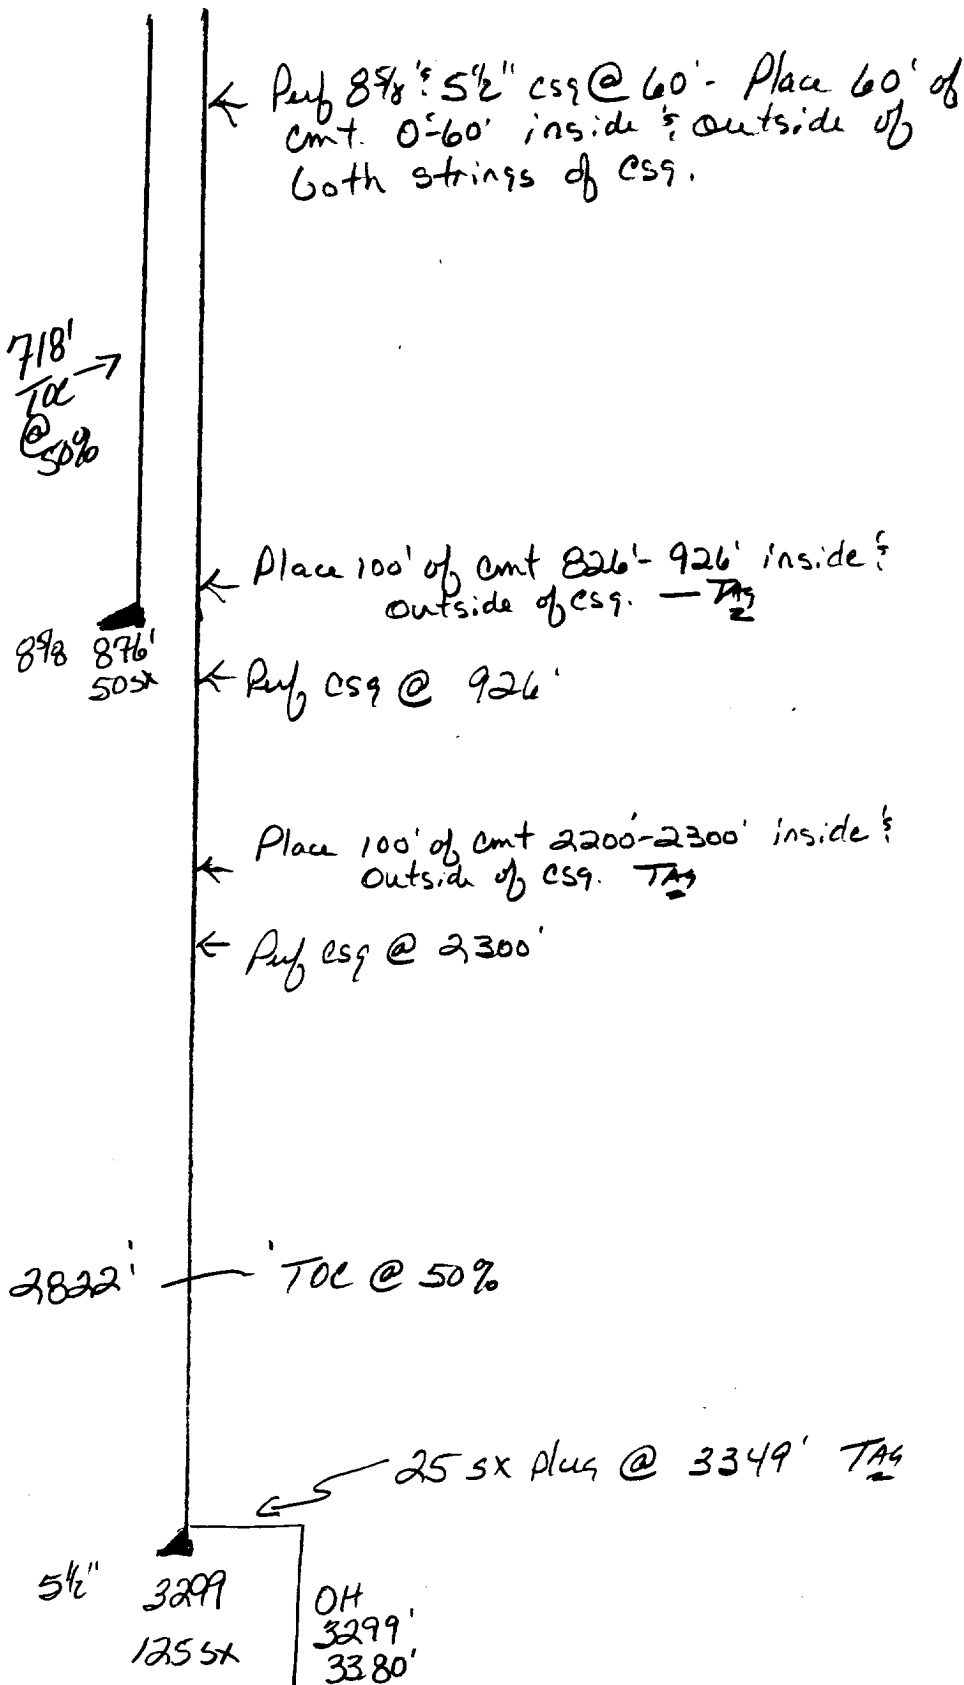 Perf 8 5/8 & 5 1/2" csg @ 60' - Place 60' of
cmt. 0'-60' inside & outside of
both strings of csg.
718'
TOC
@
50%
Place 100' of cmt 826'- 926' inside &
outside of csg. — TAG
8 5/8 876'
50 sx
Perf csg @ 926'
Place 100' of cmt 2200'-2300' inside &
outside of csg. TAG
Perf csg @ 2300'
2822' TOC @ 50%
25 sx plug @ 3349' TAG
5 1/2" 3299
125 sx
OH
3299'
3380'